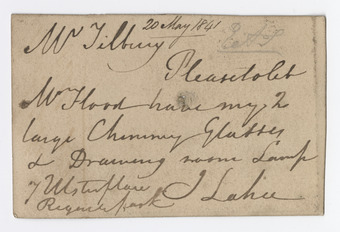 20 May 1841
Mr Tilbury
Please to let
Mr Hood have my 2
large Chimney Glasses
& Drawing room Lamp
7 Ulster place
Regents park
J Lahee